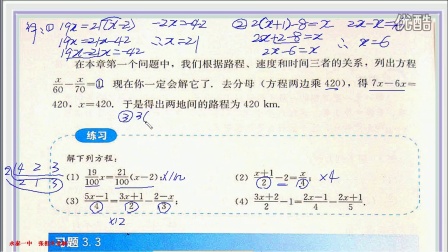 解：① 19x=21(x-2) -2x=-42 ② 2(x+1)-8=x 2x-x=
19x=21x-42 ∴x=21 2x+2-8=x ∴x=6
19x-21x=-42 2x-6=x
在本章第一个问题中，我们根据路程、速度和时间三者的关系，列出方程
x/60-x/70=1 现在你一定会解它了．去分母（方程两边乘420），得7x-6x=
420，x=420．于是得出两地间的路程为 420 km.
③ 3(
练习
解下列方程：
(1) 19/100 x=21/100 (x-2); x100 (2) (x+1)/2-2=x/4; ×4
(3) (5x-1)/4=(3x+1)/2-(2-x)/3; (4) (3x+2)/2-1=(2x-1)/4-(2x+1)/5.
×12
2 4 2 3
2 1 3
习题 3.3
永泰一中